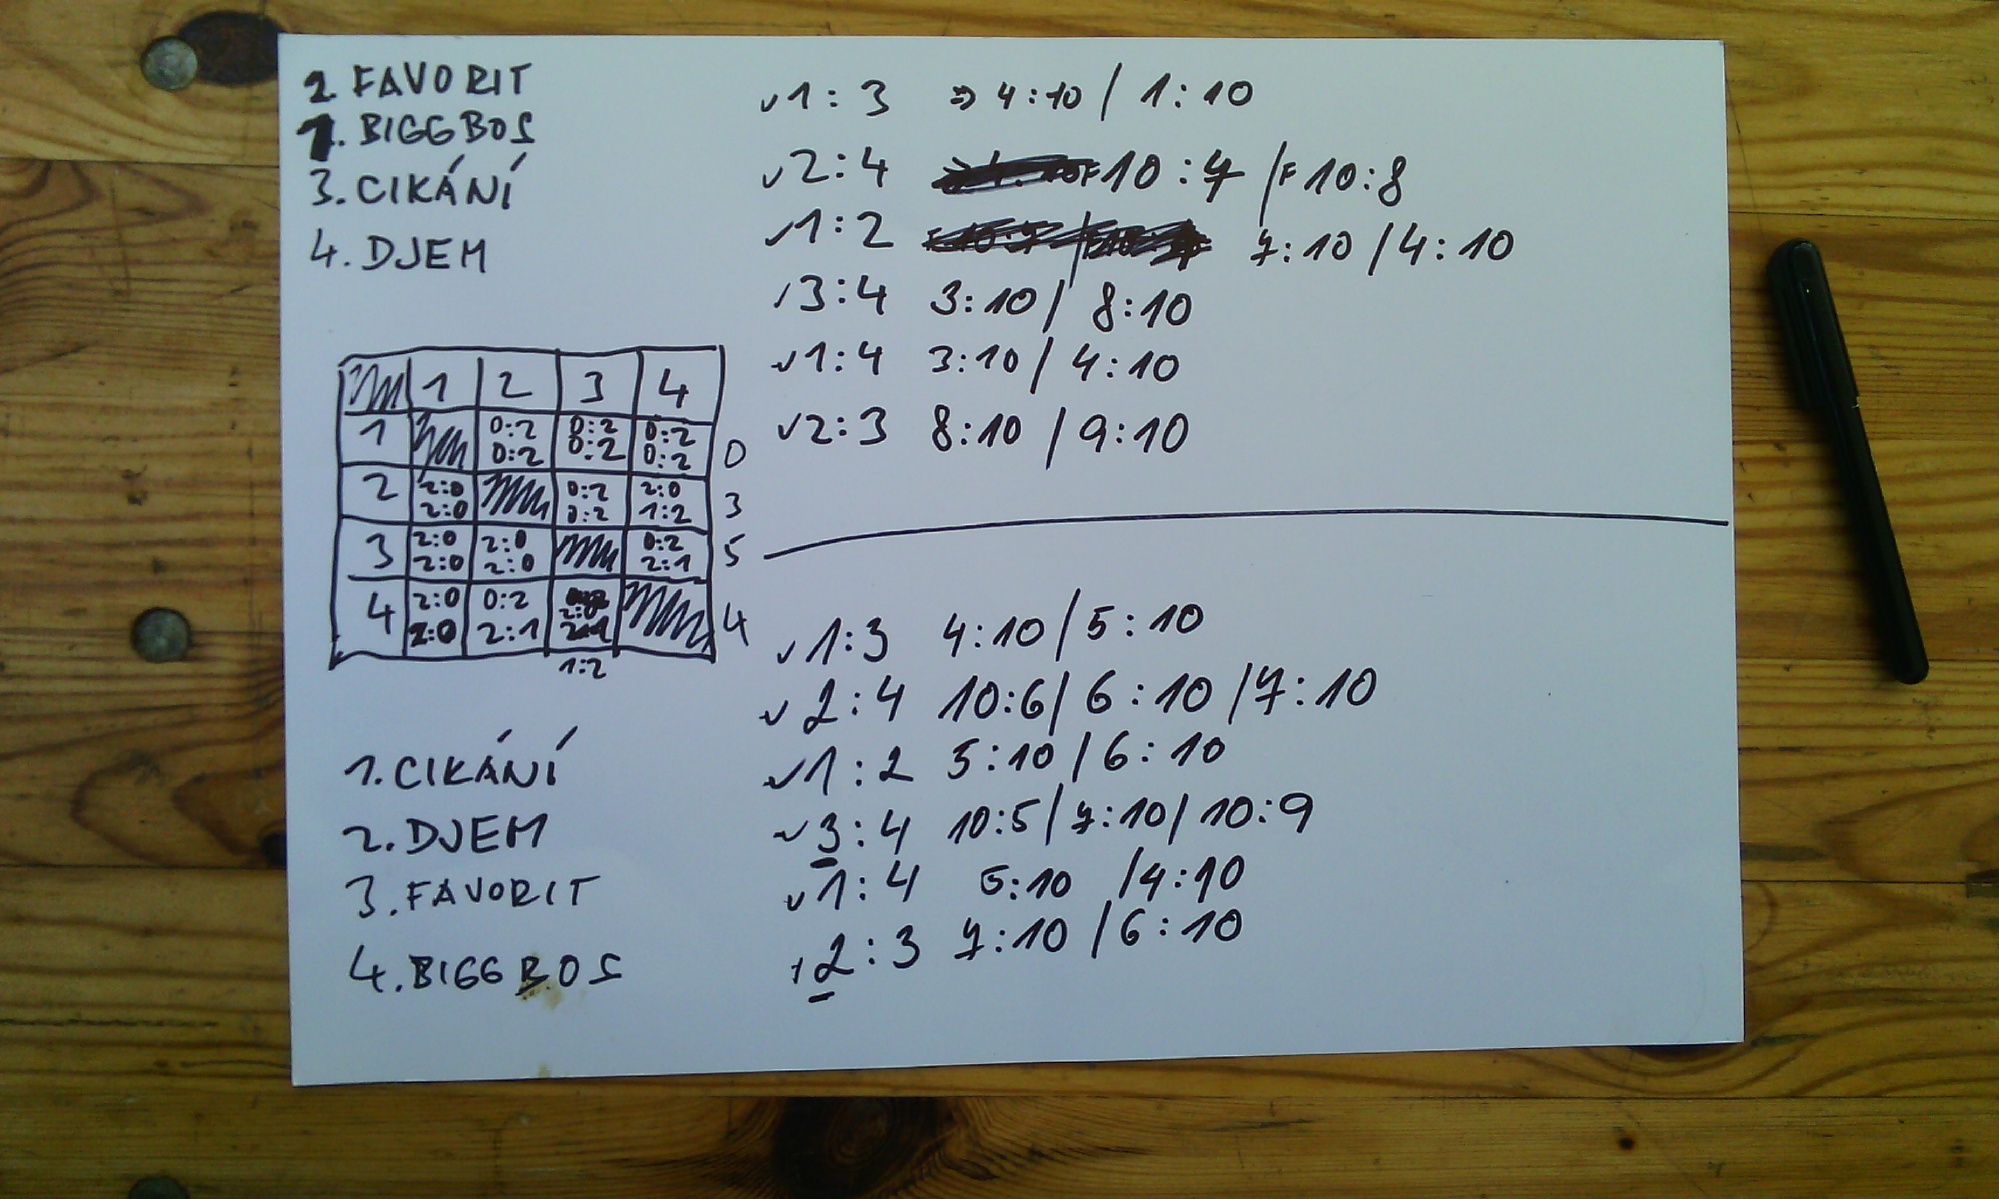 2. FAVORIT
1. BIGGBOS
3. CIKÁNÍ
4. DJEM
1 2 3 4
1 0:2 0:2 0:2 0
0:2 0:2 0:2
2 2:0 0:2 2:0 3
2:0 0:2 1:2
3 2:0 2:0 0:2 5
2:0 2:0 2:1
4 2:0 0:2 2:0 4
2:0 2:1
1:2
1. CIKÁNÍ
2. DJEM
3. FAVORIT
4. BIGGBOS
✓1:3 ⇒ 4:10 / 1:10
✓2:4 F10:7 / F10:8
✓1:2 7:10 / 4:10
✓3:4 3:10 / 8:10
✓1:4 3:10 / 4:10
✓2:3 8:10 / 9:10
✓1:3 4:10 / 5:10
✓2:4 10:6 / 6:10 / 7:10
✓1:2 5:10 / 6:10
✓3:4 10:5 / 7:10 / 10:9
✓1:4 5:10 / 4:10
2:3 7:10 / 6:10